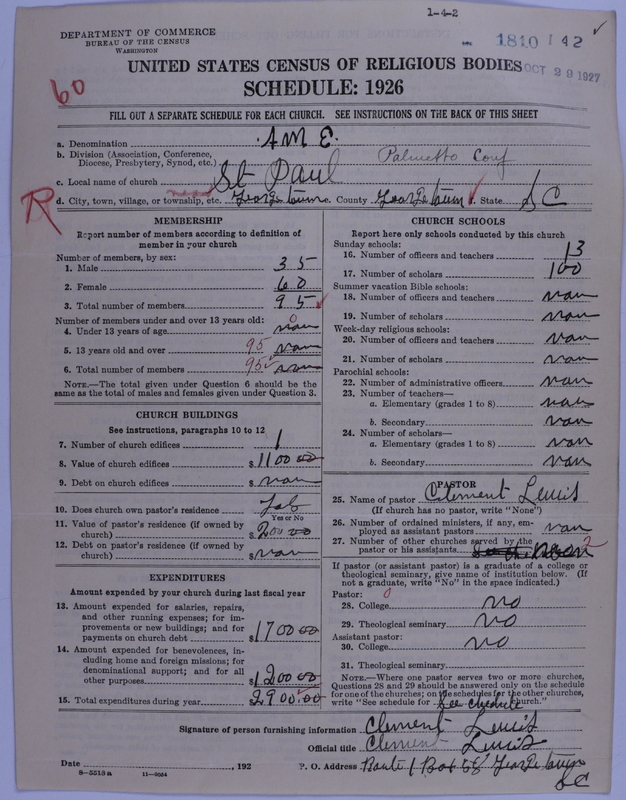 1-4-2
DEPARTMENT OF COMMERCE
BUREAU OF THE CENSUS
WASHINGTON
1810 142
OCT 29 1927
UNITED STATES CENSUS OF RELIGIOUS BODIES
SCHEDULE: 1926
60
FILL OUT A SEPARATE SCHEDULE FOR EACH CHURCH. SEE INSTRUCTIONS ON THE BACK OF THIS SHEET
a. Denomination A M E
b. Division (Association, Conference, Diocese, Presbytery, Synod, etc.) Palmetto Conf
c. Local name of church St Paul
d. City, town, village, or township, etc. near Georgetown County Georgetown State S C
R
MEMBERSHIP
Report number of members according to definition of member in your church
Number of members, by sex:
1. Male 35
2. Female 60
3. Total number of members 95
Number of members under and over 13 years old:
4. Under 13 years of age 0 nan
5. 13 years old and over 95 nan
6. Total number of members 95 nan
NOTE.—The total given under Question 6 should be the same as the total of males and females given under Question 3.
CHURCH BUILDINGS
See instructions, paragraphs 10 to 12
7. Number of church edifices 1
8. Value of church edifices $ 1100 00
9. Debt on church edifices $ nan
10. Does church own pastor's residence
Yes or No
11. Value of pastor's residence (if owned by church) $ 200 00
12. Debt on pastor's residence (if owned by church) $ nan
EXPENDITURES
Amount expended by your church during last fiscal year
13. Amount expended for salaries, repairs, and other running expenses; for improvements or new buildings; and for payments on church debt $ 1700 00
14. Amount expended for benevolences, including home and foreign missions; for denominational support; and for all other purposes $ 1200 00
15. Total expenditures during year $ 2900.00
CHURCH SCHOOLS
Report here only schools conducted by this church
Sunday schools:
16. Number of officers and teachers 13
17. Number of scholars 100
Summer vacation Bible schools:
18. Number of officers and teachers nan
19. Number of scholars nan
Week-day religious schools:
20. Number of officers and teachers nan
21. Number of scholars nan
Parochial schools:
22. Number of administrative officers nan
23. Number of teachers—
a. Elementary (grades 1 to 8) nan
b. Secondary nan
24. Number of scholars—
a. Elementary (grades 1 to 8) nan
b. Secondary nan
PASTOR
25. Name of pastor Clement Lewis
(If church has no pastor, write "None")
26. Number of ordained ministers, if any, employed as assistant pastors nan
27. Number of other churches served by the pastor or his assistants 2
If pastor (or assistant pastor) is a graduate of a college or theological seminary, give name of institution below. (If not a graduate, write "No" in the space indicated.)
Pastor: 0
28. College no
29. Theological seminary no
Assistant pastor:
30. College no
31. Theological seminary
NOTE.—Where one pastor serves two or more churches, Questions 28 and 29 should be answered only on the schedule for one of the churches; on the schedules for the other churches, write "See schedule for church."
See schedule
Signature of person furnishing information Clement Lewis
Official title Clement Lewis
Date , 192
P. O. Address Route 1 Box 58 Georgetown
SC
8-5513a 11-9064